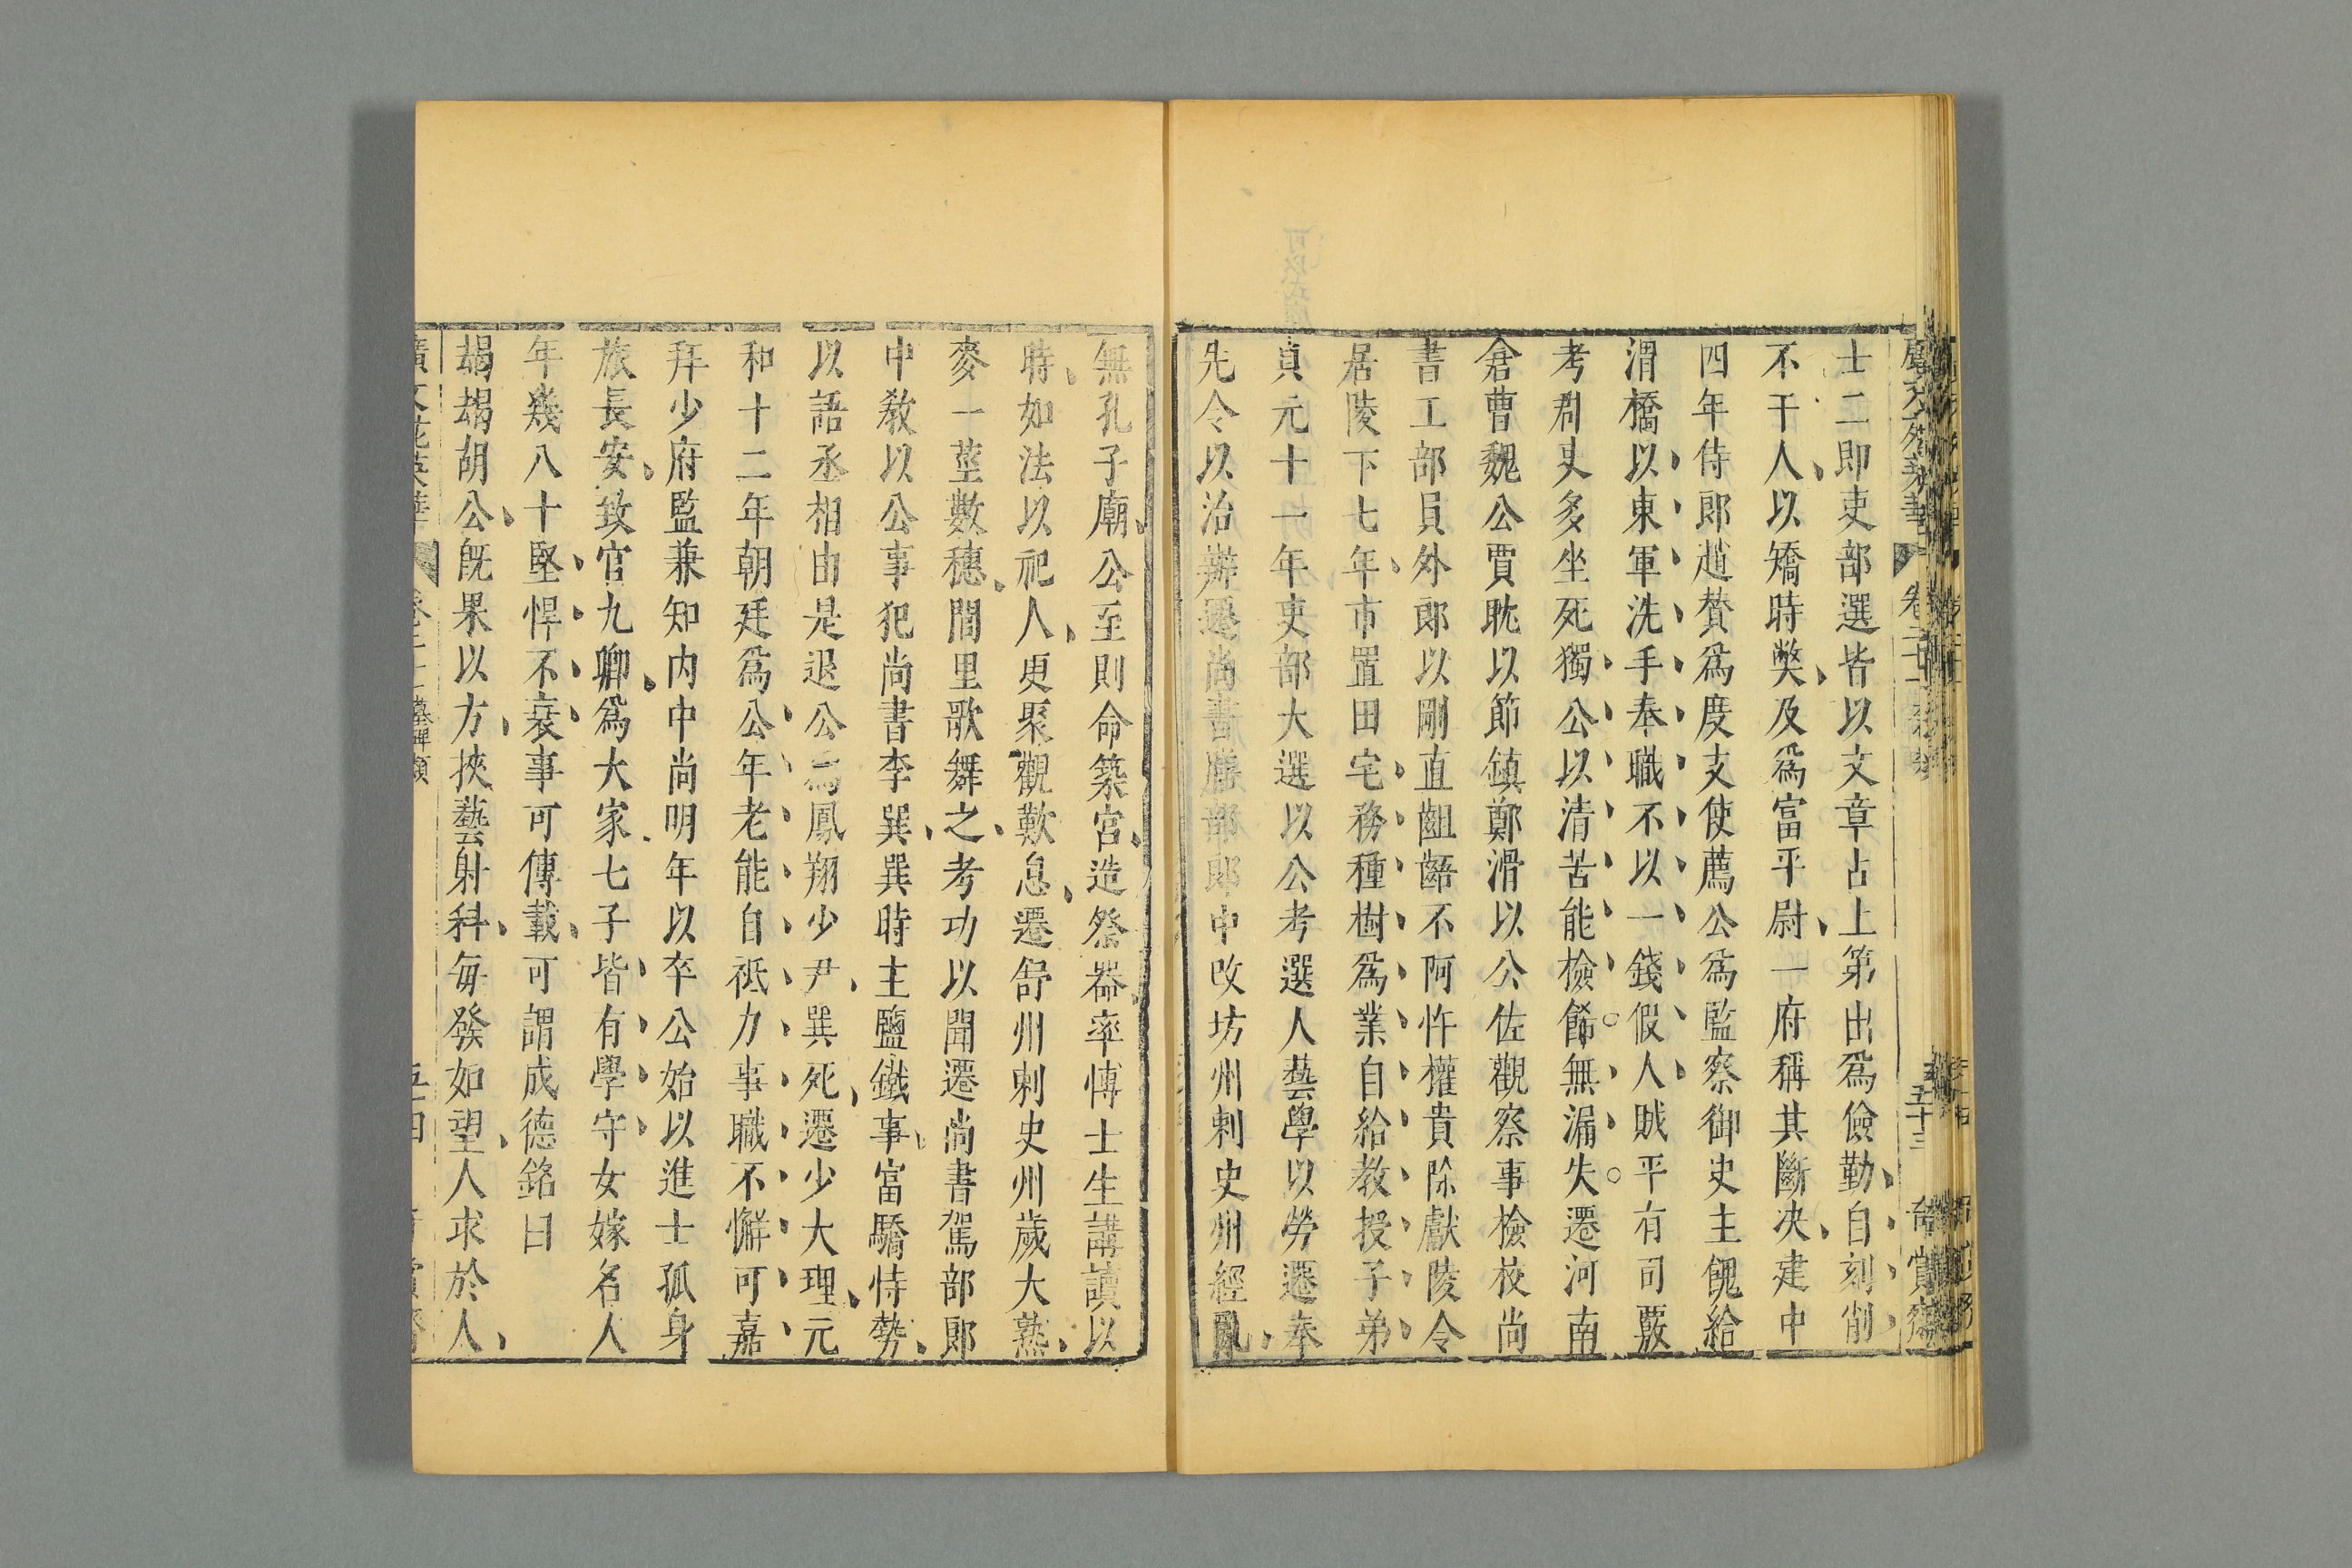 士二即吏部選皆以文章占上第出爲儉勤自刻削
不干人以矯時獘及爲富平尉一府稱其斷决建中
四年侍郎趙賛爲度支使薦公爲監察御史主餽給
渭橋以東軍洗手奉職不以一錢假人賊平有司覈
考羣吏多坐死獨公以清苦能檢飭無漏失遷河南
倉曹魏公賈耽以節鎮鄭滑以公佐觀察事檢校尚
書工部員外郎以剛直齟齬不阿忤權貴除獻陵令
居陵下七年市置田宅務種樹爲業自給教授子弟
貞元十一年吏部大選以公考選人藝學以勞遷奉
先令以治辦遷尚書膳部郎中改坊州刺史州經亂
無孔子廟公至則命築宮造祭器率博士生講讀以
時如法以祀人更聚觀歎息遷舒州刺史州歲大熟
麥一莖數穗閭里歌舞之考功以聞遷尚書駕部郎
中敎以公事犯尚書李巽巽時主鹽鐵事富驕恃勢
以語丞相由是退公爲鳳翔少尹巽死遷少大理元
和十二年朝廷爲公年老能自祗力事職不懈可嘉
拜少府監兼知内中尚明年以卒公始以進士孤身
旅長安致官九卿爲大家七子皆有學守女嫁名人
年幾八十堅悍不衰事可傳載可謂成德銘曰
朅朅胡公旣果以方挾藝射科每發如望人求於人